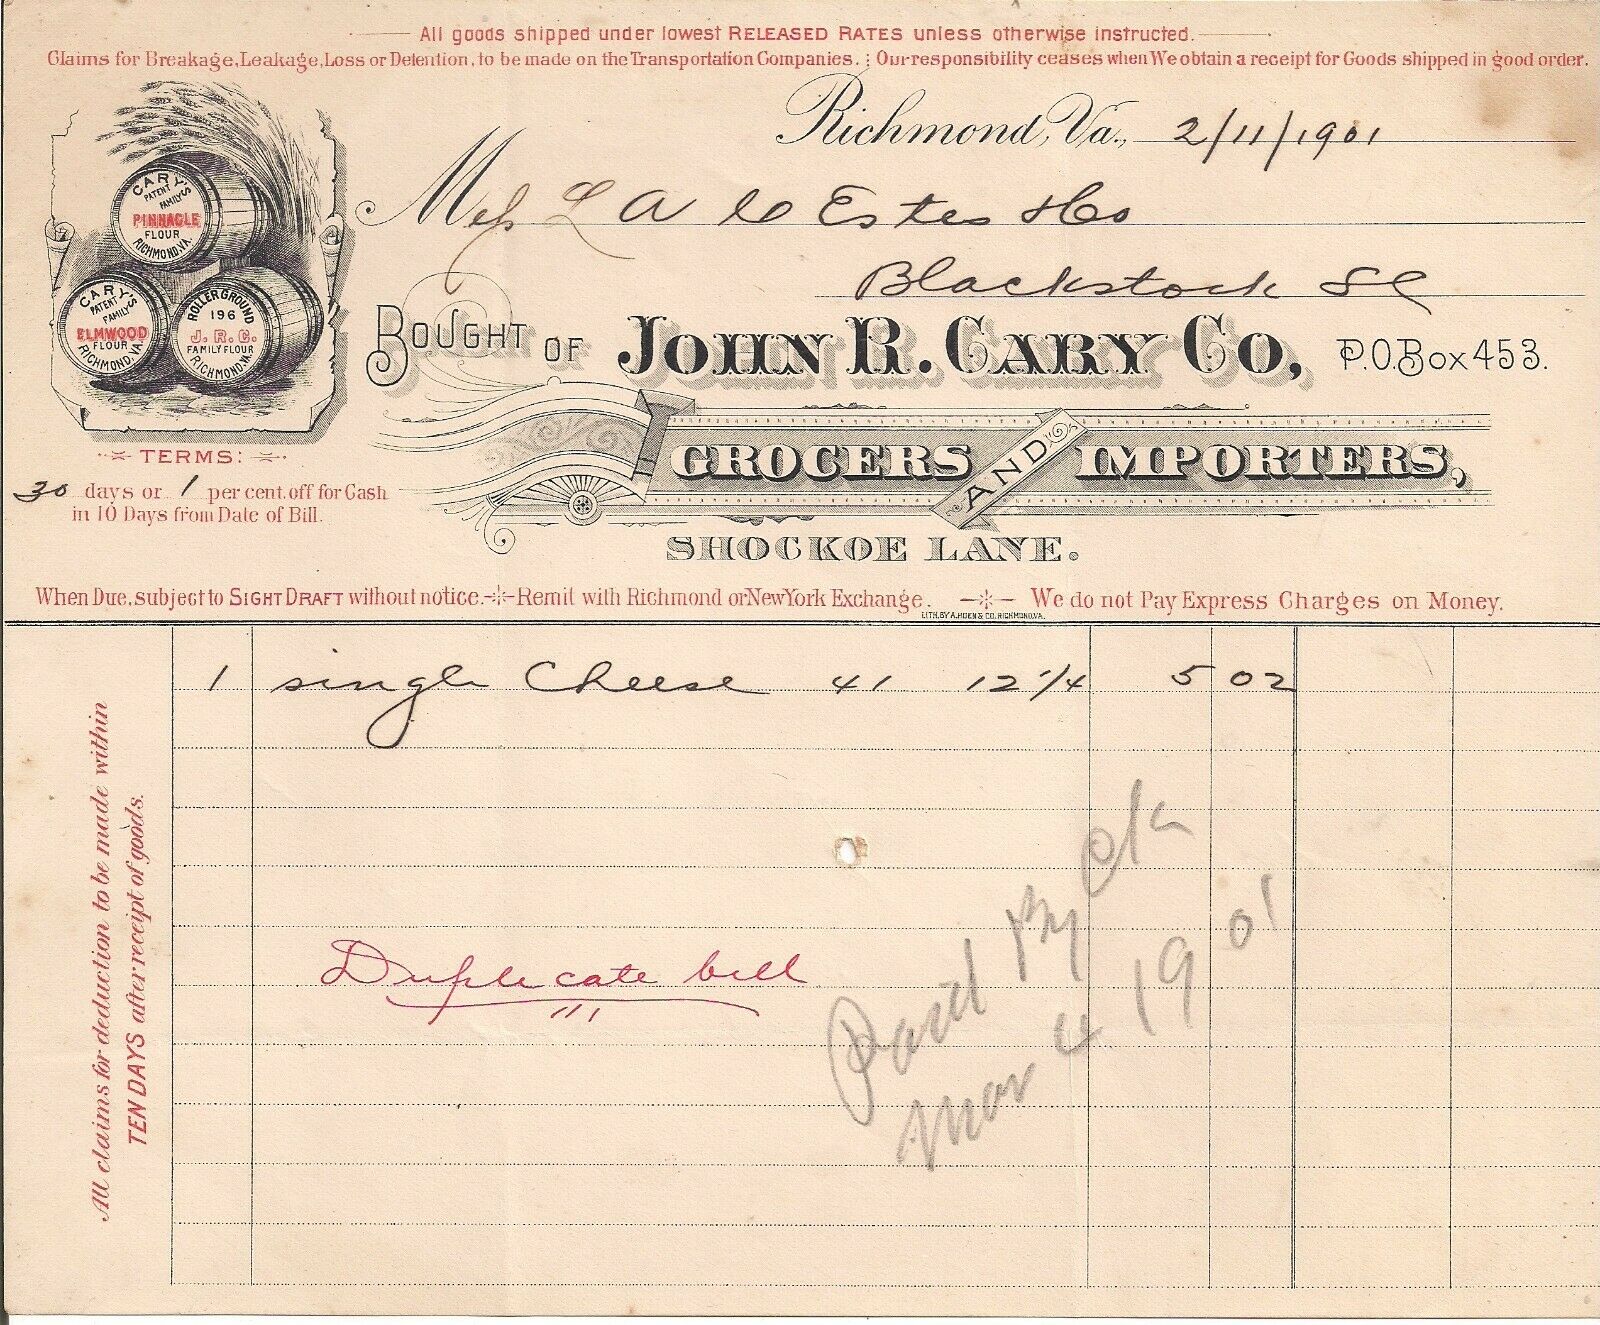 All goods shipped under lowest RELEASED RATES unless otherwise instructed.
Claims for Breakage, Leakage, Loss or Detention, to be made on the Transportation Companies. Our responsibility ceases when We obtain a receipt for Goods shipped in good order.
Richmond, Va., 2/11/1901
L A Estes & Co
Blackstock SC
CARY'S
PATENT
FAMILY
PINNACLE
FLOUR
RICHMOND, VA.
CARY'S
PATENT
FAMILY
ELMWOOD
FLOUR
RICHMOND, VA.
ROLLER GROUND
196
J.R.C.
FAMILY FLOUR
RICHMOND, VA.
BOUGHT OF JOHN R. CARY CO, P.O. Box 453.
GROCERS AND IMPORTERS,
SHOCKOE LANE.
TERMS:
30 days or 1 per cent. off for Cash
in 10 Days from Date of Bill.
When Due, subject to SIGHT DRAFT without notice. Remit with Richmond or New York Exchange. We do not Pay Express Charges on Money.
LITH. BY A. HOEN & CO. RICHMOND, VA.
1 single Cheese 41 12 1/4 5 02
All claims for deduction to be made within
TEN DAYS after receipt of goods.
Duplicate bill
Paid By Ck
Mar 4 1901